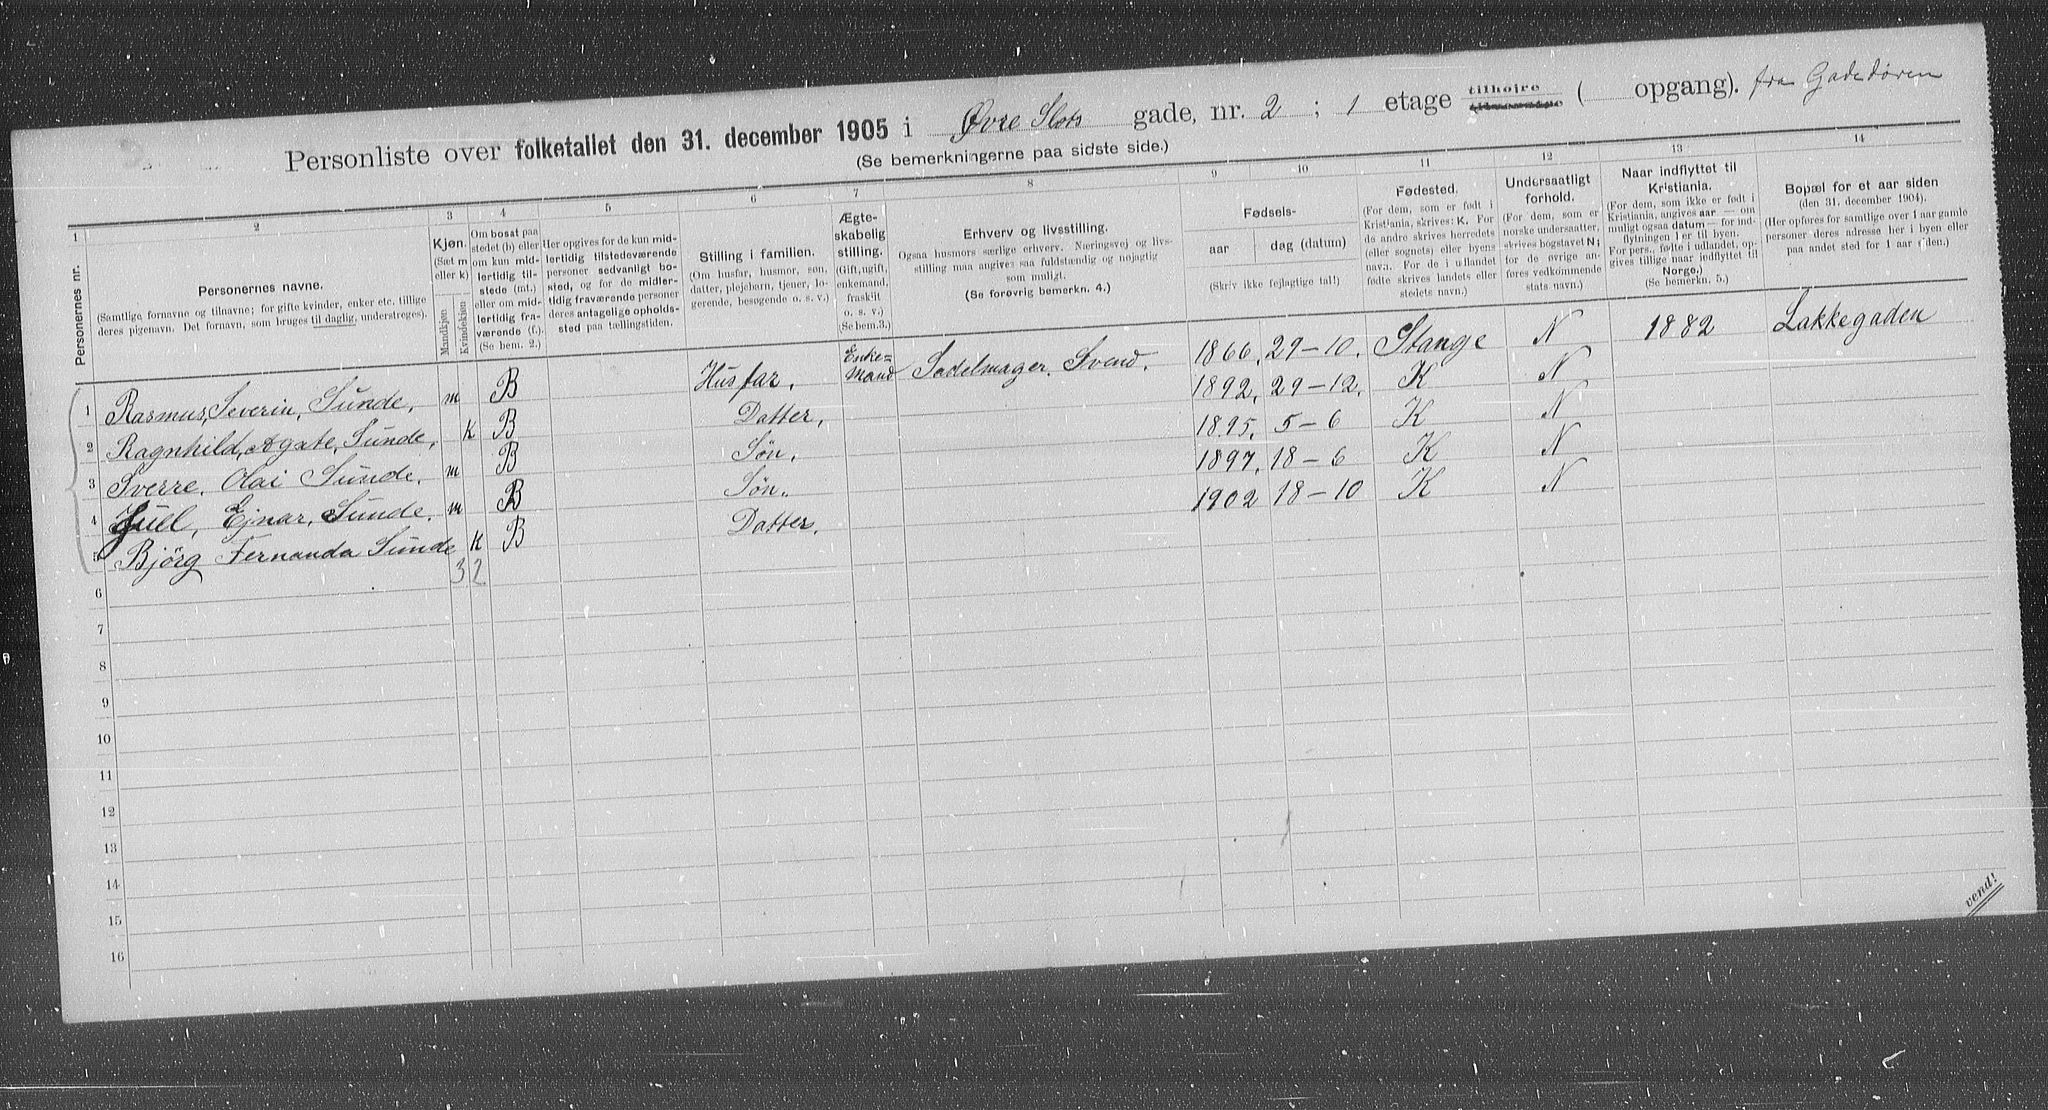 Personliste over folketallet den 31. december 1905 i Øvre Slots gade, nr. 2 ; 1 etage tilhøjre ( opgang). fra Gadedøren
(Se bemerkningerne paa sidste side.)
1 2 3 4 5 6 7 8 9 10 11 12 13 14
Personernes nr.
Personernes navne.
(Samtlige fornavne og tilnavne; for gifte kvinder, enker etc. tillige
deres pigenavn. Det fornavn, som bruges til daglig, understreges).
Kjøn.
(Sæt m
eller k)
Mandkjøn.
Kvindekjøn
Om bosat paa
stedet (b) eller
om kun mid-
lertidig til-
stede (mt.)
eller om mid-
lertidig fra-
værende (f.)
(Se bem. 2.)
Her opgives for de kun mid-
lertidig tilstedeværende
personer sedvanligt bo-
sted, og for de midler-
tidig fraværende personer
deres antagelige opholds-
sted paa tællingstiden.
Stilling i familien.
(Om husfar, husmor, søn,
datter, plejebarn, tjener, lo-
gerende, besøgende o. s. v.)
Ægte-
skabelig
stilling.
(Gift, ugift,
enkemand,
fraskilt
o. s. v.)
(Se bem.3.)
Erhverv og livsstilling.
Ogsaa husmors særlige erhverv. Næringsvej og livs-
stilling maa angives saa fuldstændig og nøjagtig
som muligt.
(Se forøvrig bemerkn. 4.)
Fødsels-
aar
dag (datum)
(Skriv ikke fejlagtige tal!)
Fødested.
(For dem, som er født i
Kristiania, skrives: K. For
de andre skrives herredets
(eller sognets) eller byens
navn. For de i udlandet
fødte skrives landets eller
stedets navn.)
Undersaatligt
forhold.
(For dem, som er
norske undersaatter,
skrives bogstavet N;
for de øvrige an-
føres vedkommende
stats navn.)
Naar indflyttet til
Kristiania.
(For dem, som ikke er født i
Kristiania, angives aar — om
muligt ogsaa datum — for ind-
flytningen i er til byen.
For pers., fødte i udlandet, op-
gives tillige naar indflyttet til
Norge.)
(Se bemerkn. 5.)
Bopæl for et aar siden
(den 31. december 1904).
(Her opføres for samtlige over 1 aar gamle
personer deres adresse her i byen eller
paa andet sted for 1 aar siden.)
1 Rasmus, Severin, Sunde, m B Husfar, Enke=mand Sadelmager. Svend. 1866, 29-10. Stange N 1882 Lakkegaden
2 Ragnhild, Agate, Sunde, K B Datter, 1892, 29-12. K N
3 Sverre, Olai Sunde, m B Søn, 1895, 5-6 K N
4 Juel, Ejnar, Sunde, m B Søn. 1897, 18-6 K N
5 Bjørg Fernanda Sunde K B Datter. 1902 18-10 K N
3 2
6
7
8
9
10
11
12
13
14
15
16
vend!